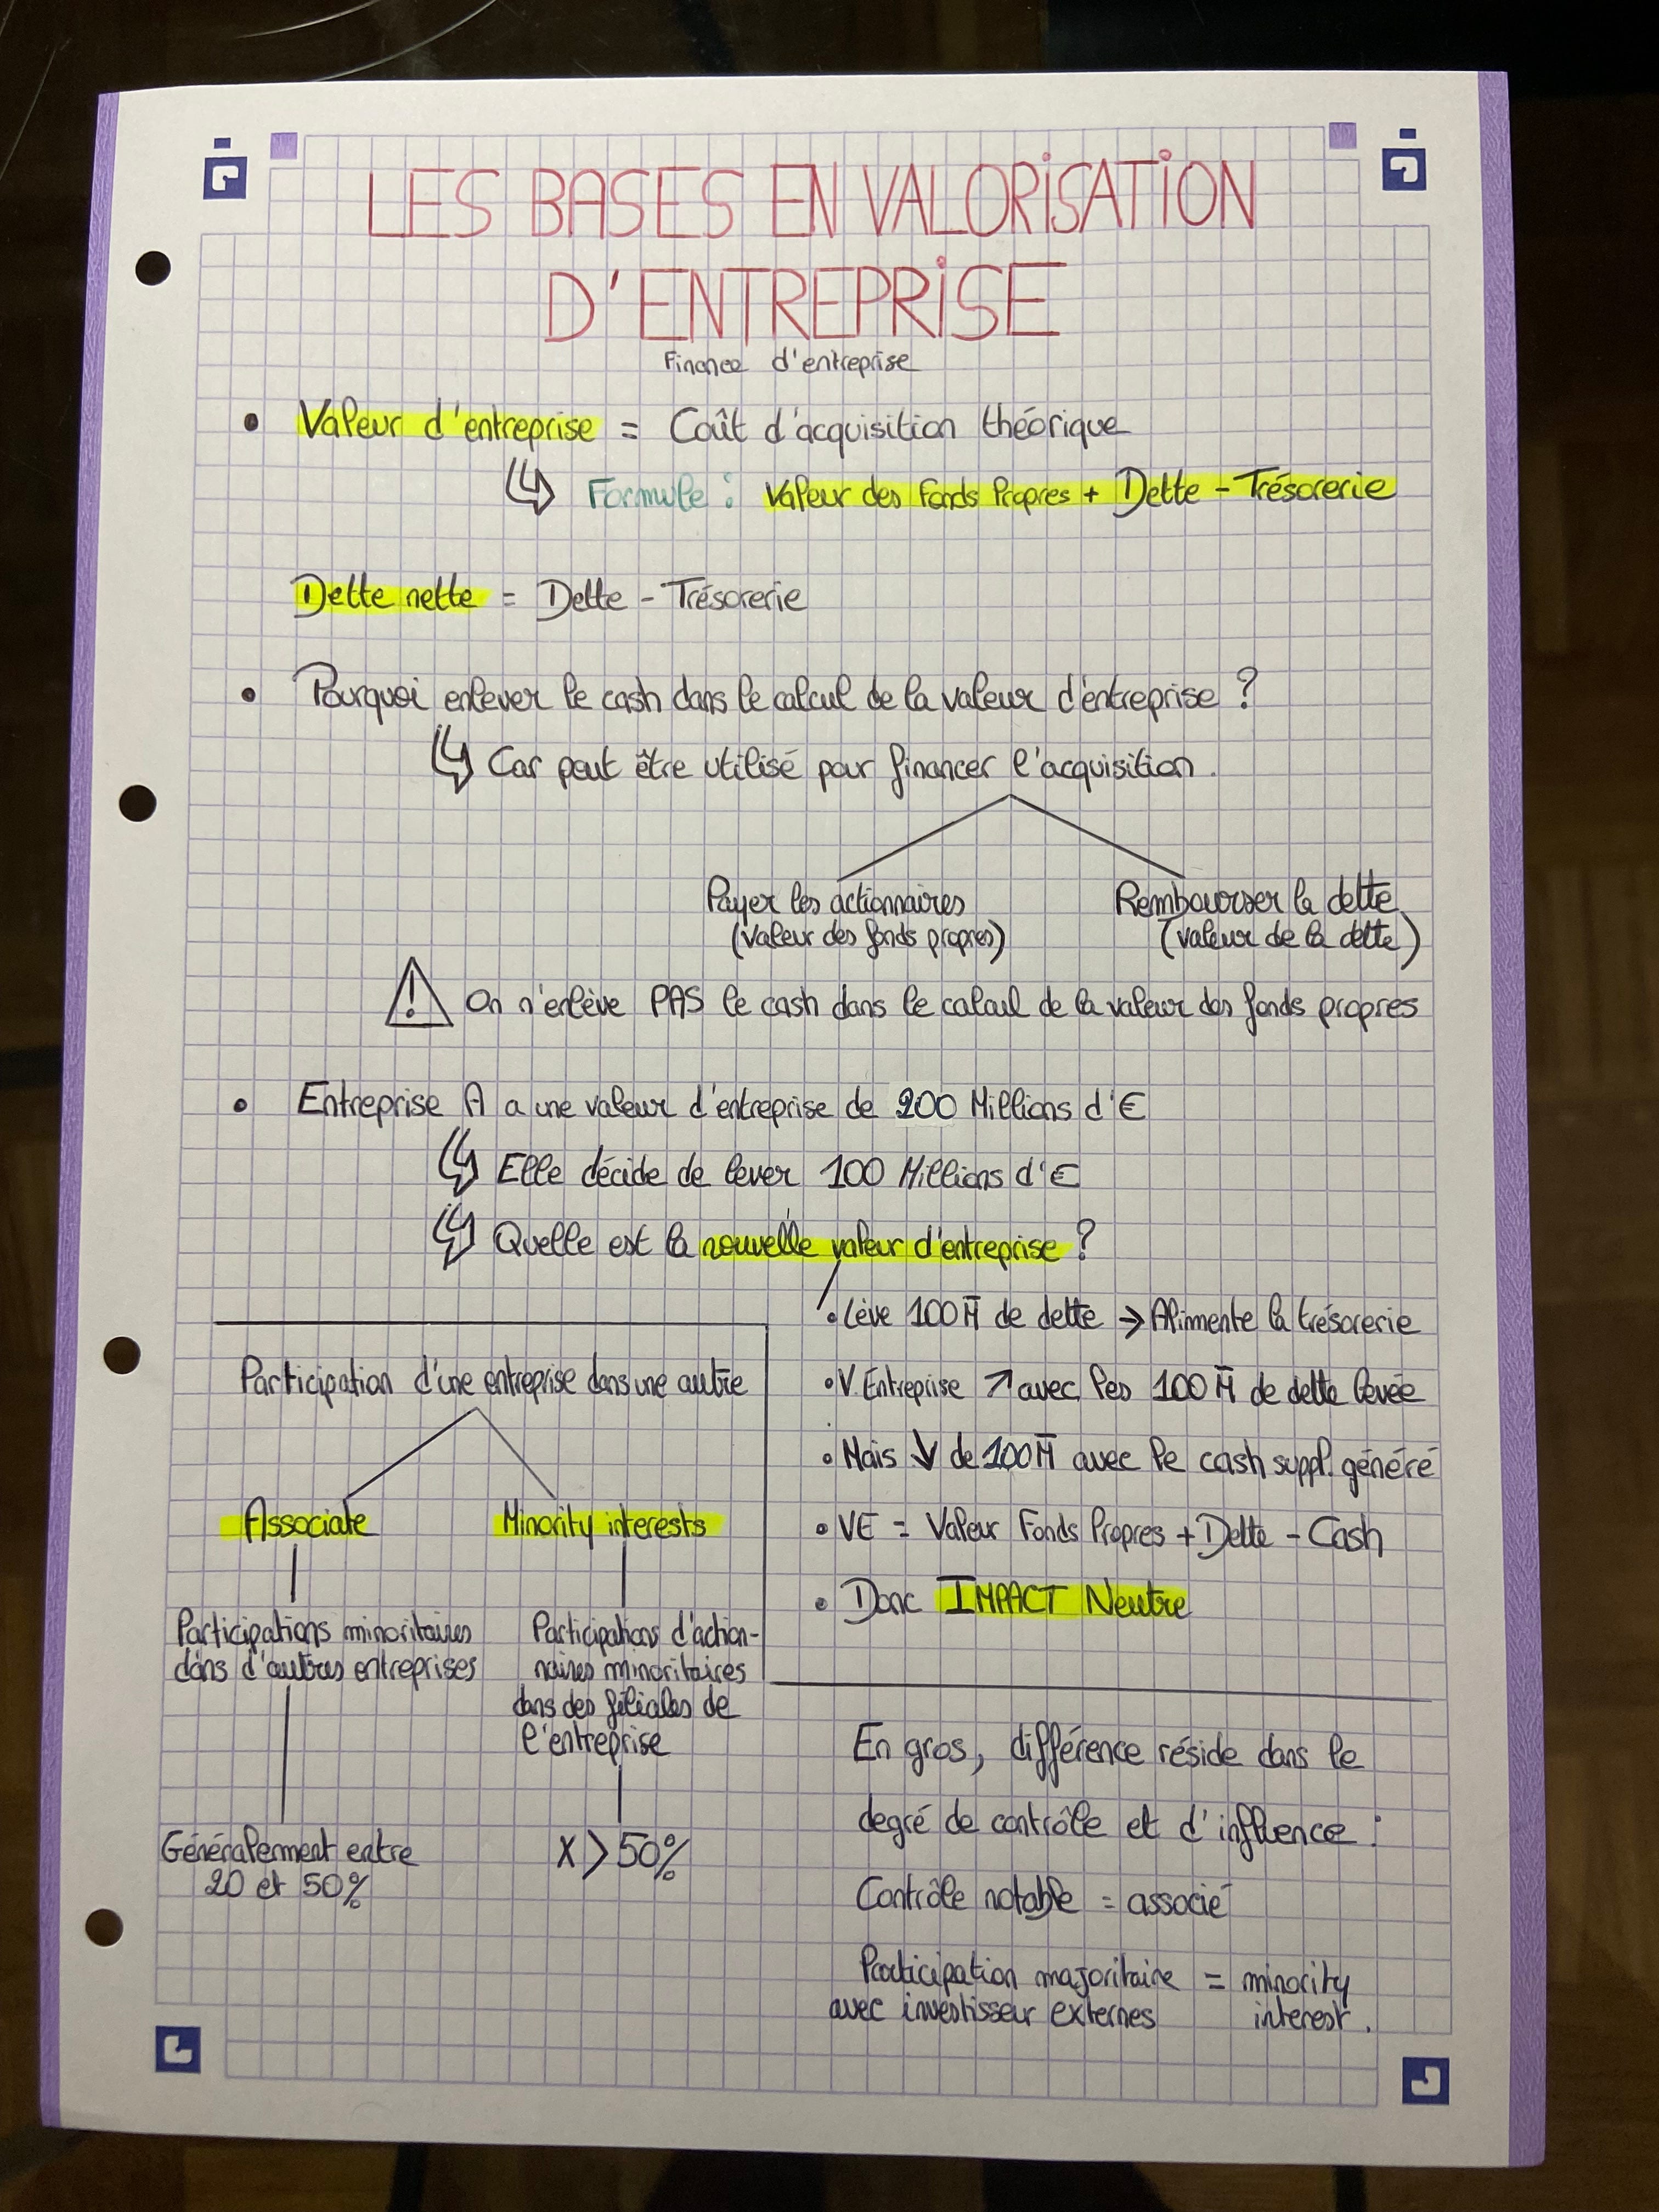 LES BASES EN VALORISATION
D'ENTREPRISE
Finance d'entreprise
• Valeur d'entreprise = Coût d'acquisition théorique
Formule : Valeur des Fonds Propres + Dette - Trésorerie
Dette nette = Dette - Trésorerie
• Pourquoi enlever le cash dans le calcul de la valeur d'entreprise ?
Car peut être utilisé pour financer l'acquisition.
Payer les actionnaires
(valeur des fonds propres)
Rembourser la dette
(valeur de la dette)
On n'enlève PAS le cash dans le calcul de la valeur des fonds propres
• Entreprise A a une valeur d'entreprise de 200 Millions d'€
Elle décide de lever 100 Millions d'€
Quelle est la nouvelle valeur d'entreprise ?
• Lève 100 M de dette → Alimente la trésorerie
• V. Entreprise ↗ avec les 100 M de dette levée
• Mais ↓ de 100 M avec le cash suppl. généré
• VE = Valeur Fonds Propres + Dette - Cash
• Donc IMPACT Neutre
Participation d'une entreprise dans une autre
Associate
Participations minoritaires
dans d'autres entreprises
Généralement entre
20 et 50%
Minority interests
Participations d'action-
naires minoritaires
dans des filiales de
l'entreprise
X > 50%
En gros, différence réside dans le
degré de contrôle et d'influence :
Contrôle notable = associé
Participation majoritaire = minority
avec investisseur externes interest.